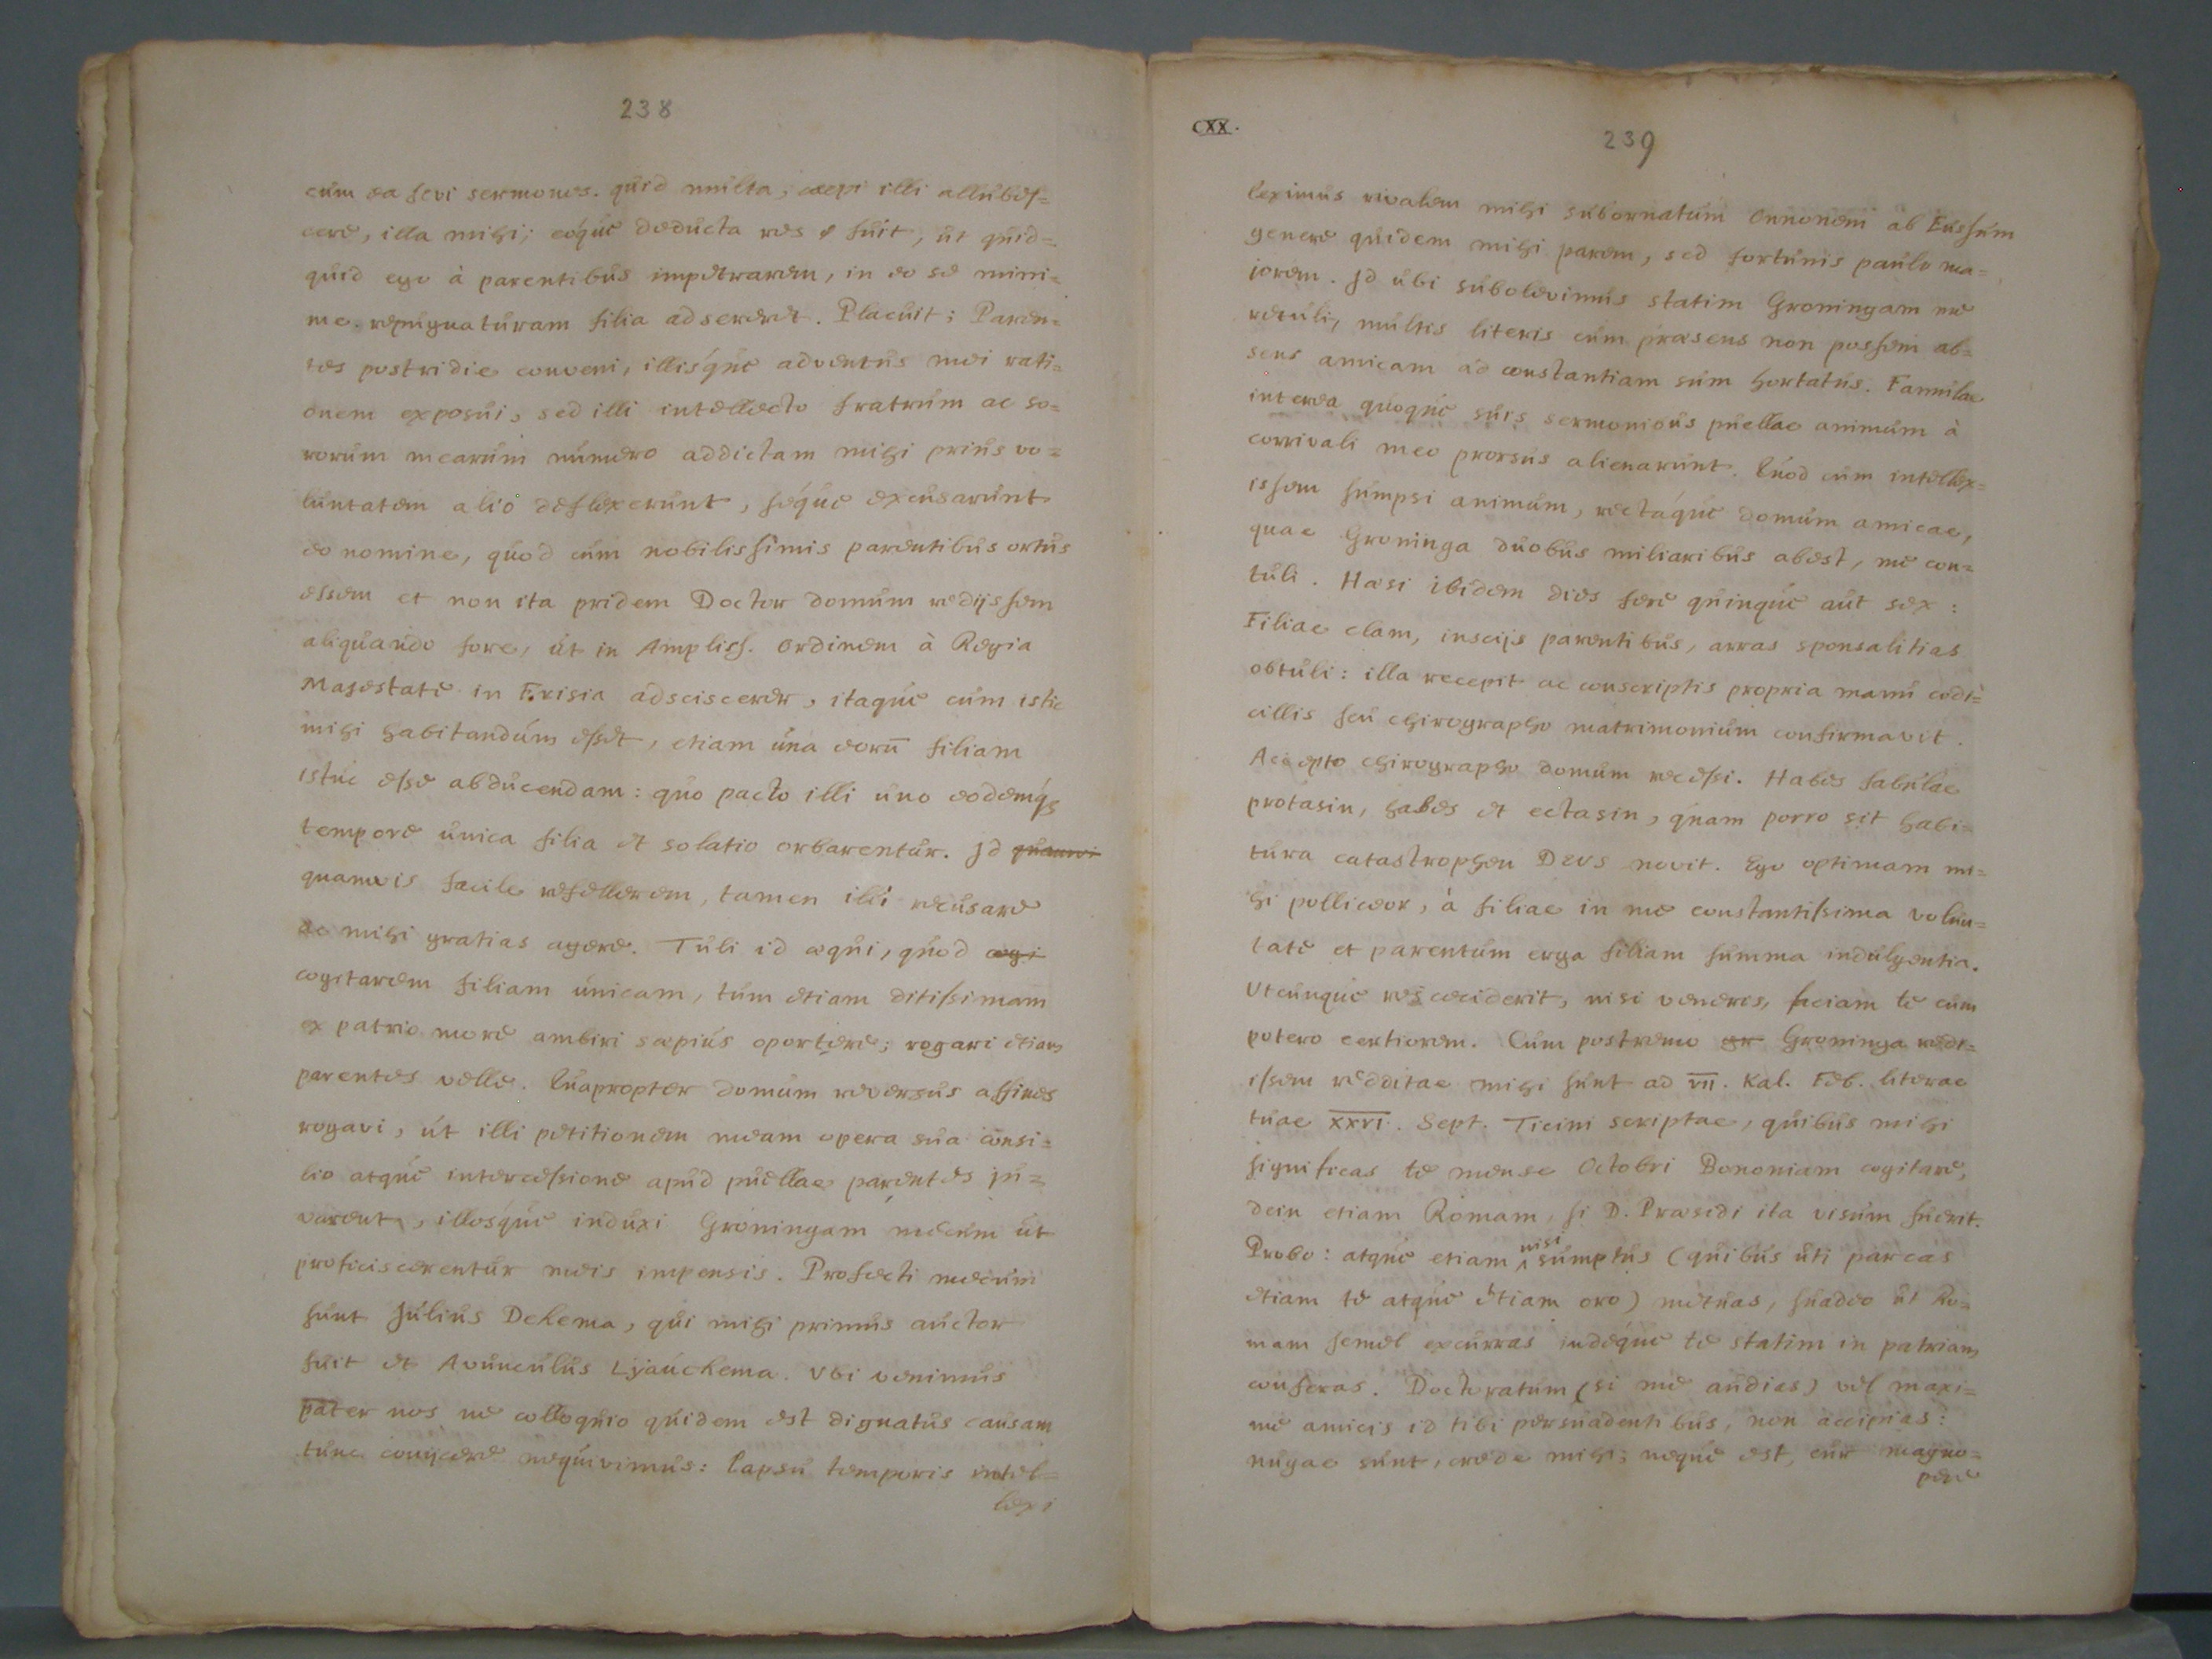 238
cùm ea sevi sermones. quid multa; coepi illi allubes=
cere, illa mihi; eóque deducta res fuit, ut quid=
quid ego à parentibus impetrarem, in eo se mini=
me repugnaturam filia adsereret. Placuit; Paren=
tes postridie conveni, illisque adventus mei rati=
onem exposui, sed illi intellecto fratrum ac so=
rorum mearum numero addictam mihi prius vo=
luntatem aliò deflexerunt, seque excusarunt
eo nomine, quod cum nobilissimis parentibus ortus
essem et non ita pridem Doctor domum redijssem
aliquando fore, ut in Ampliss. ordinem à Regia
Majestate in Frisia adsciscerer, itaque cum istic
mihi habitandum esset, etiam unà eorū filiam
istuc esse abducendam: quo pacto illi uno eodemq;
tempore unica filia et solatio orbarentur. Id quamvi
quamvis facile refellerem, tamen illi recusare
ac mihi gratias agere. Tuli id aequi, quod cogi
cogitarem filiam unicam, tum etiam ditissimam
ex patrio more ambiri saepius oportere; rogari etiam
parentes velle. Quapropter domum reversus affines
rogavi, ut illi petitionem meam opera sua consi=
lio atque intercessione apud puellae parentes ju=
varent, illosque induxi Groningam mecum ut
proficiscerentur meis impensis. Profecti mecum
sunt Julius Dekema, qui mihi primus auctor
fuit et Avunculus Lyauckema. Vbi venimus
pater nos ne colloquio quidem est dignatus causam
tunc conijcere nequivimus: lapsu temporis intel=
lexi
CXX.
239
leximus rivalem mihi subornatum Onnonem ab Eussum
genere quidem mihi parem, sed fortunis paulo ma=
jorem. Id ubi subolevimus statim Groningam me
retuli, multis literis cum praesens non possem ab=
sens amicam ad constantiam sum hortatus. Famulae
interea quoque suis sermonibus puellae animum à
corrivali meo prorsus alienarunt. Quod cum intellex=
issem sumpsi animum, rectáque domum amicae,
quae Groninga duobus miliaribus abest, me con=
tuli. Haesi ibidem dies fere quinque aut sex:
Filiae clam, inscijs parentibus, arras sponsalitias
obtuli: illa recepit ac conscriptis propria manu codi=
cillis seu chirographo matrimonium confirmavit.
Accepto chirographo domum recessi. Habes fabulae
protasin, habes et ectasin, quam porro sit habi=
tura catastrophen Deus novit. Ego optimam mi=
hi polliceor, à filiae in me constantissima volun=
tate et parentum erga filiam summa indulgentia.
Utcunque res ceciderit, nisi veneris, faciam te cum
potero certiorem. Cum postremo gr Groninga redi=
issem redditae mihi sunt ad VII. Kal. Feb. literae
tuae XXVI. Sept. Ticini scriptae, quibus mihi
significas te mense Octobri Bononiam cogitare,
dein etiam Romam, si D. Praesidi ita visum fuerit.
Probo: atque etiam nisi sumptus (quibus uti parcas
etiam te atque etiam oro) metuas, suadeo ut Ro=
mam semel excurras indéque te statim in patriam
conferas. Doctoratum (si me audias) vel maxi=
me amicis id tibi persuadentibus, non accipias:
nugae sunt, crede mihi; neque est, cur magno=
pere